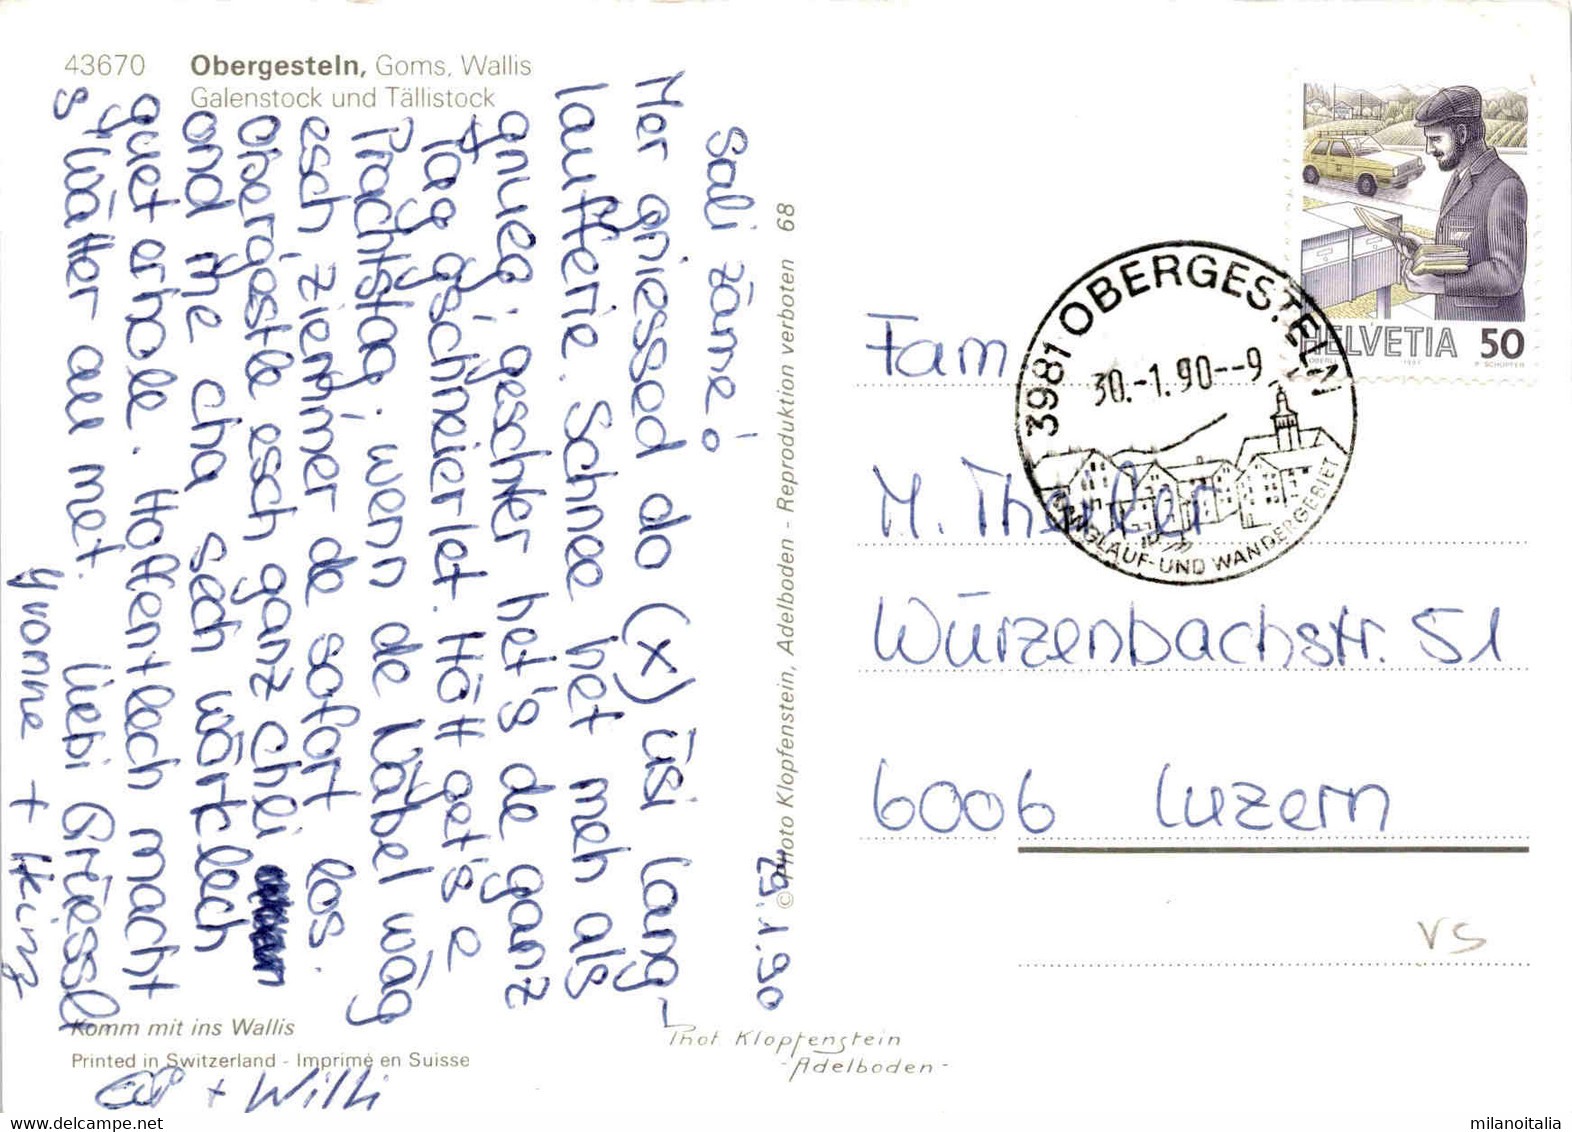 43670 Obergesteln, Goms, Wallis
Galenstock und Tällistock
29.1.90
Sali zäme!
Mer gniessed do (x) üsi Lang-
laufferie. Schnee het meh als
gnueg; geschter het's de ganz
Tag gschneierlet. Hött get's e
Prachtstag; wenn de Näbel wäg
esch, ziemmer de sofort los.
Obergestle esch ganz chli
ond me cha sech wörklech
guet erhole. Hoffentlech macht
s'Wätter au met. Liebi Grüessli
Yvonne + Heinz
+ Willi
Komm mit ins Wallis
Printed in Switzerland - Imprimé en Suisse
© Photo Klopfenstein, Adelboden - Reproduktion verboten 68
Phot Klopfenstein
- Adelboden -
HELVETIA 50
3981 OBERGESTELN
30.-1.90--9
LANGLAUF- UND WANDERGEBIET
Fam
M. Theiler
Würzenbachstr. 51
6006 Luzern
VS
milanoitalia